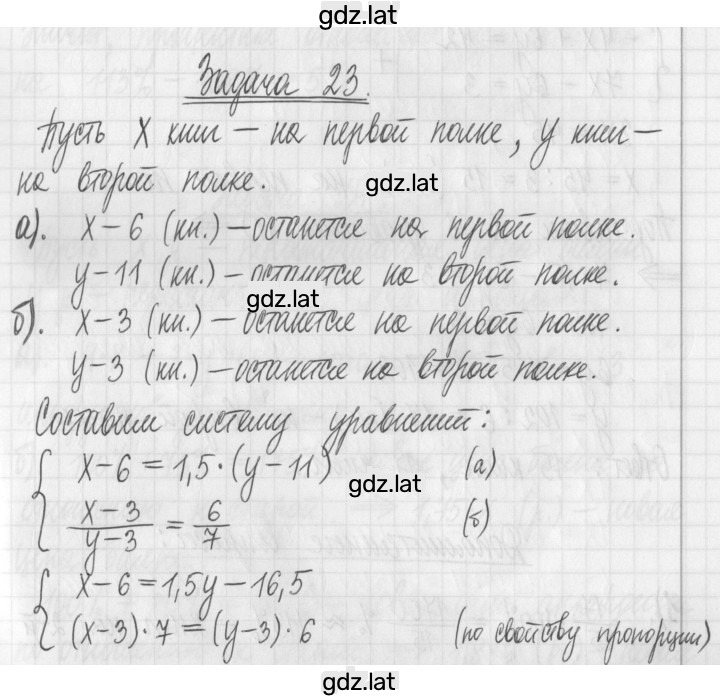 gdz.lat
Задача 23.
Пусть X книг – на первой полке, y книг –
на второй полке.
gdz.lat
а). x – 6 (кн.) – останется на первой полке.
y – 11 (кн.) – останется на второй полке.
gdz.lat
б). x – 3 (кн.) – останется на первой полке.
y – 3 (кн.) – останется на второй полке.
Составим систему уравнений:
{ x – 6 = 1,5 · (y – 11) (а)
gdz.lat
(x – 3)/(y – 3) = 6/7 (б)
{ x – 6 = 1,5y – 16,5
(x – 3) · 7 = (y – 3) · 6 (по свойству пропорции)
gdz.lat